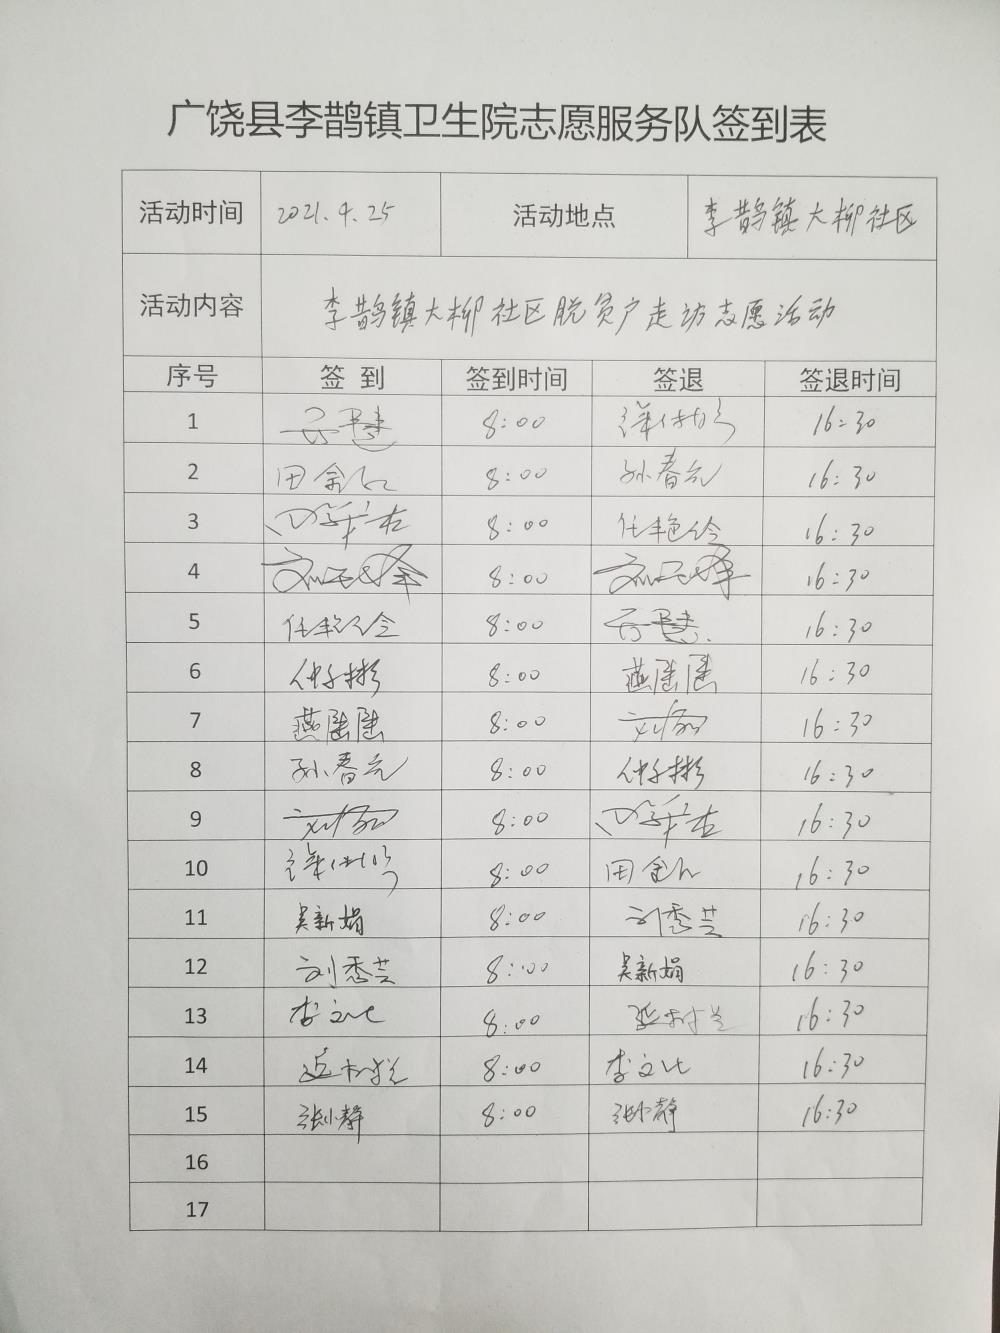 广饶县李鹊镇卫生院志愿服务队签到表
活动时间 2021.4.25 活动地点 李鹊镇大柳社区
活动内容 李鹊镇大柳社区脱贫户走访志愿活动
序号 签 到 签到时间 签退 签退时间
1 8:00 16:30
2 田 8:00 孙春元 16:30
3 8:00 任艳玲 16:30
4 8:00 16:30
5 任艳玲 8:00 16:30
6 8:00 燕 16:30
7 燕 8:00 16:30
8 孙春元 8:00 16:30
9 8:00 16:30
10 8:00 田 16:30
11 吴新娟 8:00 刘秀芸 16:30
12 刘秀芸 8:00 吴新娟 16:30
13 李文 8:00 16:30
14 8:00 李文 16:30
15 张小静 8:00 张小静 16:30
16
17